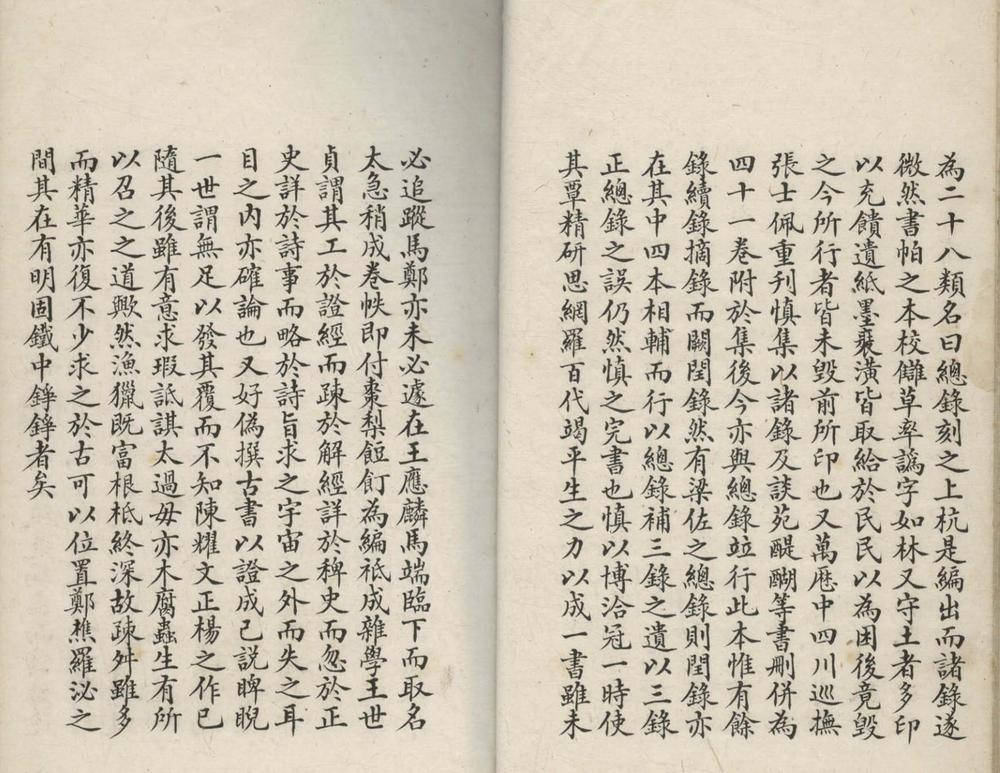 為二十八類名曰總錄刻之上杭是編出而諸錄遂
微然書帕之本校讎草率譌字如林又守土者多印
以充饋遺紙墨裝潢皆取給於民民以為困後竟毀
之今所行者皆未毀前所印也又萬厯中四川巡撫
張士佩重刊慎集以諸錄及談苑醍醐等書刪併為
四十一卷附於集後今亦與總錄竝行此本惟有餘
錄續錄摘錄而闕閏錄然有梁佐之總錄則閏錄亦
在其中四本相輔而行以總錄補三錄之遺以三錄
正總錄之誤仍然慎之完書也慎以博洽冠一時使
其覃精研思網羅百代竭平生之力以成一書雖未
必追蹤馬鄭亦未必遽在王應麟馬端臨下而取名
太急稍成卷帙即付棗棃餖飣為編祗成雜學王世
貞謂其工於證經而疎於解經詳於稗史而忽於正
史詳於詩事而略於詩旨求之宇宙之外而失之耳
目之內亦確論也又好偽撰古書以證成己說睥睨
一世謂無足以發其覆而不知陳耀文正楊之作已
隨其後雖有意求瑕詆諆太過毋亦木腐蟲生有所
以召之之道歟然漁獵既富根柢終深故疎舛雖多
而精華亦復不少求之於古可以位置鄭樵羅泌之
間其在有明固鐵中錚錚者矣